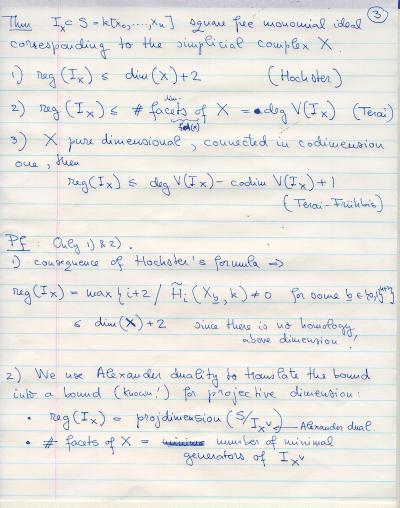 3
Thm I_X ⊂ S = k[x_0, ...., x_n] square free monomial ideal
corresponding to the simplicial complex X.
1) reg(I_X) ≤ dim(X)+2 (Hochster)
2) reg(I_X) ≤ # facets of X = deg V(I_X) (Terai)
3) X pure dimensional, connected in codimension
one, then
reg(I_X) ≤ deg V(I_X) - codim V(I_X)+1
(Terai-Frühbis)
Pf: Only 1) & 2).
1) consequence of Hochster's formula →
reg(I_X) = max { i+2 / H̃_i(X_b, k) ≠ 0 for some b ∈ {0,1}^{n+1} }
≤ dim(X)+2 since there is no homology
above dimension!
2) We use Alexander duality to translate the bound
into a bound (known!) for projective dimension:
• reg(I_X) = projdimension (S/I_X^v) Alexander dual.
• # facets of X = number of minimal
generators of I_X^v